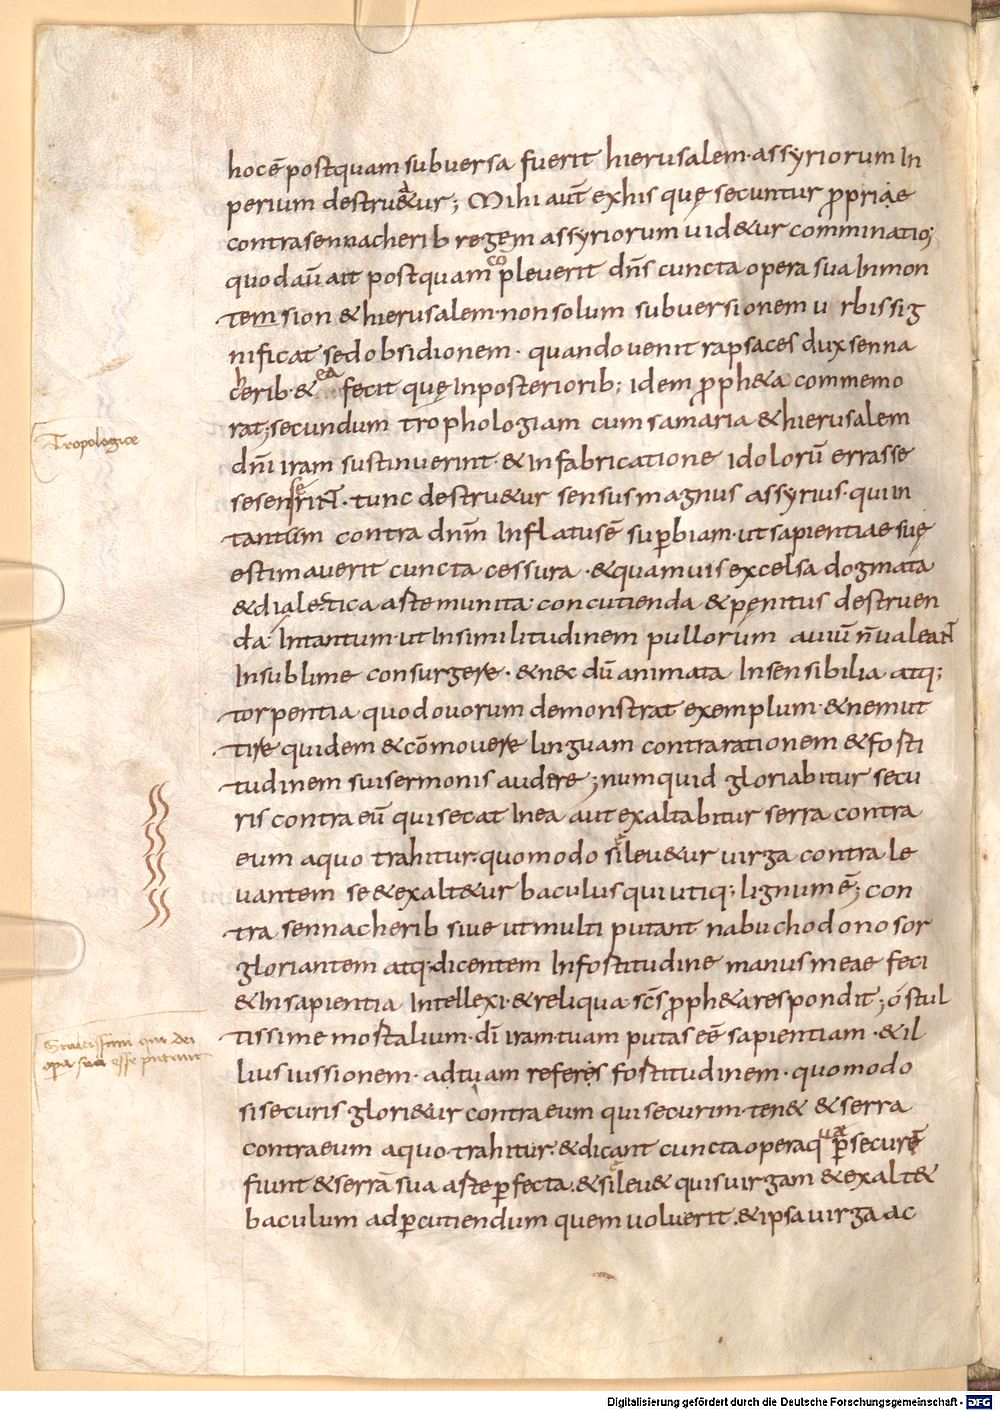 hoc ē postquam subuersa fuerit hierusalem · assyriorum In
perium destru&ur; Mihi aut̄ ex his quę secuntur ꝓpriae
contra sennacherib regem assyriorum uid&ur comminatio;
quod aū ait postquam cōpleuerit dn̄s cuncta opera sua In mon
tem sion & hierusalem · non solum subuersionem u rbis sig
nificat sed obsidionem · quando uenit rapsaces dux senna
cherib · & ea fecit quę In posteriorib; idem ꝓph&a commemo
rat; secundum trophologiam cum samaria & hierusalem
Tropologice
dn̄i iram sustinuerint · & In fabricatione idolorū errasse
se senserint · tunc destru&ur sensus magnus assyrius · qui in
tantum contra dn̄m Inflatus ē suꝑbiam · ut sapientiae suę
estimauerit cuncta cessura · & quamuis excelsa dogmata
& dialectica arte munita · concutienda & pęnitus destruen
da · Intantum · ut In similitudinem pullorum auiū n̄ ualeant
In sublime consurgere · & nec dū animata Insensibilia atq;
torpentia quod ouorum demonstrat exemplum · & ne mut
tire quidem & cōmouere linguam contra rationem & forti
tudinem sui sermonis audere; numquid gloriabitur secu
ris contra eū qui secat In ea aut exaltabitur serra contra
eum a quo trahitur · quomodo si leu&ur uirga contra le
uantem se & exalt&ur baculus qui utiq; lignum ē; con
tra sennacherib siue ut multi putant nabuchodonosor
gloriantem atq; dicentem In fortitudine manus meae feci
& In sapientia Intellexi · & reliqua sc̄s ꝓph&a respondit; o stul
tissime mortalium · dī iram tuam putas eē sapientiam · & il
Stultissimi qui dei
opera sua esse putant
lius iussionem · ad tuam referes fortitudinem · quomodo
si securis glori&ur contra eum qui securim ten& & serra
contra eum a quo trahitur · & dicant cuncta opera quae ꝑ securē
fiunt & serrā sua arte ꝑfecta · & si leu& quis uirgam & exalt&
baculum ad ꝑcutiendum quem uoluerit · & ipsa uirga ac
Digitalisierung gefördert durch die Deutsche Forschungsgemeinschaft - DFG